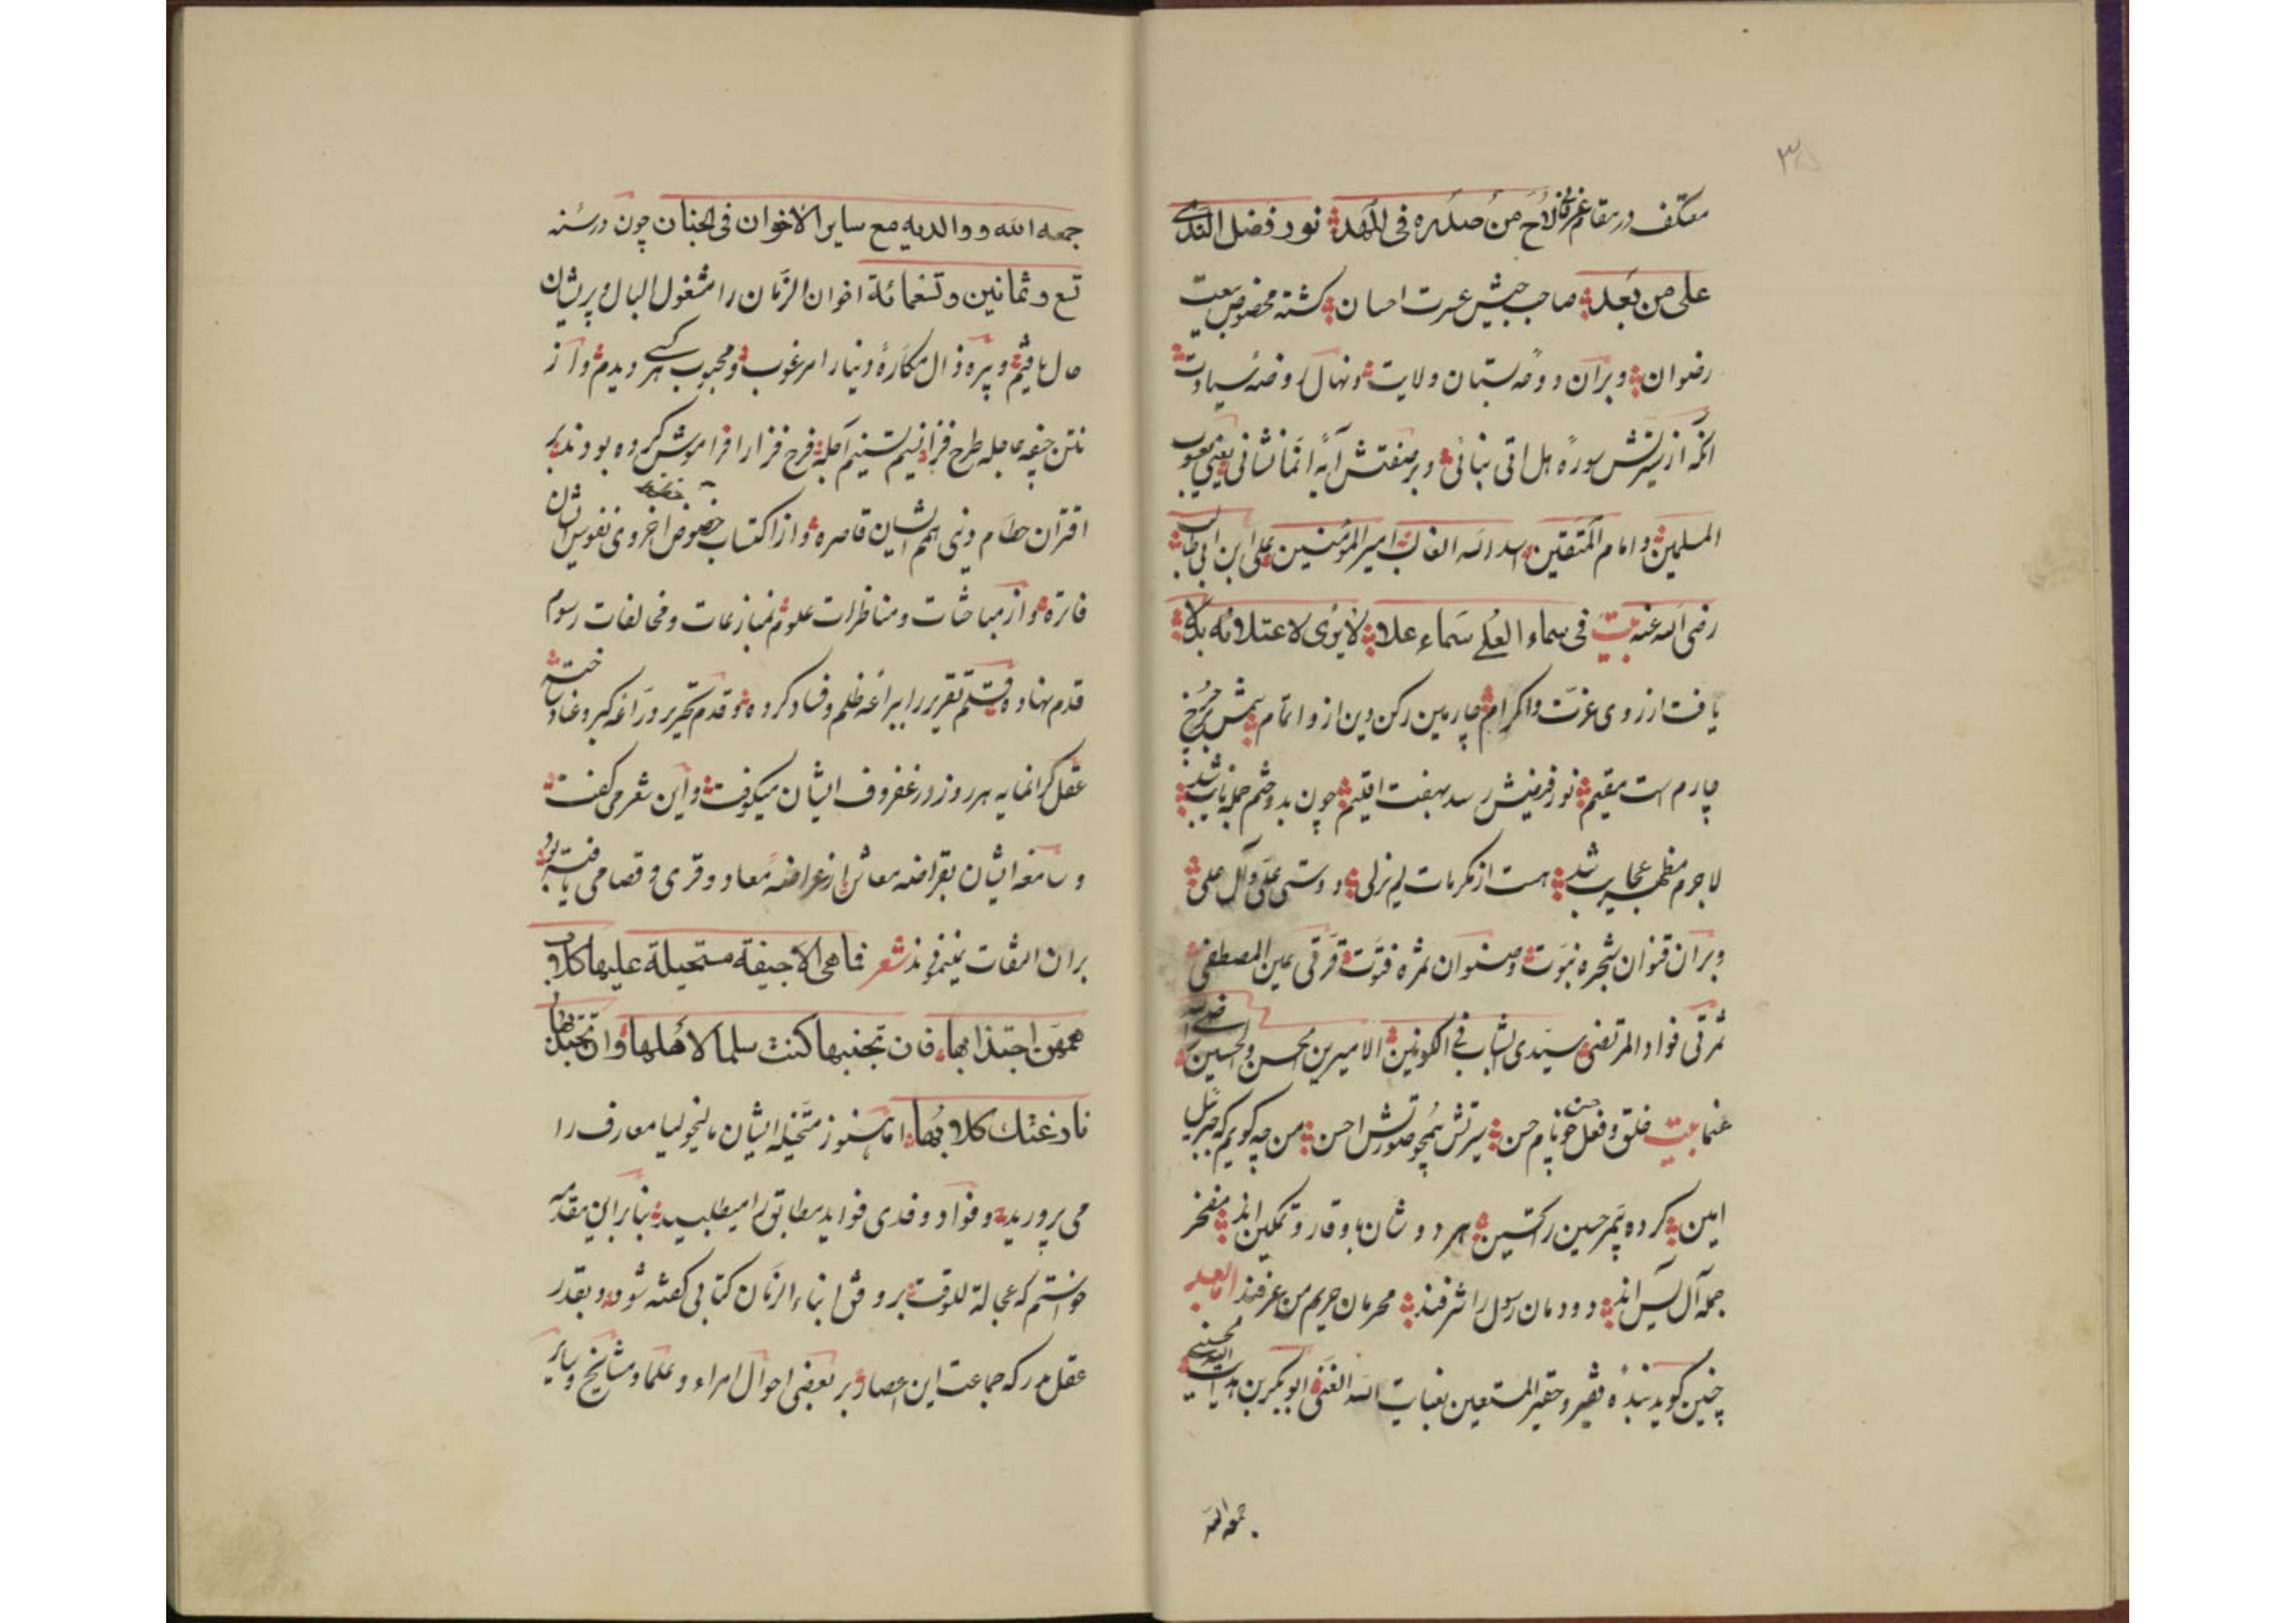 معتکف در مقام عرفان لاح من صدره فی المهد نور فضل الندی
علی من بعد صاحب جیش عسرت احسان کشته مخصوص بیعت
رضوان وبر آن دوحه بستان ولایت ونهال روضه سیادت
انکه از سیرتش سوره هل اتی بنائی وبر صفتش آیه انما نشانی یعنی یعسوب
المسلمین وامام المتقین اسد الله الغالب امیر المؤمنین علی ابن ابی طالب
رضی الله عنه بیت فی سماء العلی سماء علا لا یری لاعتلائه بدلا
یافت از روی عزت واکرام چارمین رکن دین ازو اتمام شمس بر چرخ
چارم است مقیم نور فیضش رسد بهفت اقلیم چون بدو ختم جمله نایب شد
لاجرم مظهر عجایب شد هست از مکرمات لم یزلی دوستی علی وآل علی
وبر آن قنوان شجره نبوت وصنوان ثمره فتوت قرتی عین المصطفی
ثمرتی فواد المرتضی سیدی الشاب فی الکونین الامیرین الحسن والحسین رضی الله
عنهما بیت خلق وفعل حسن چو نام حسن سیرتش همچو صورتش احسن من چه کویم که جبرئیل
امین کرده بهر حسین رکتسین هر دو شان با وقار وتمکین اند مفخر
جمله آل یس اند دودمان رسول را شرفند محرمان حریم من عرفند اما بعد
چنین کوید بنده فقیر وحقیر المستعین بغیاث الله الغنی ابوبکر بن هدایت الله الحسینی
جمعه الله
جمعه الله ووالدیه مع سایر الاخوان فی الجنان چون در سنه
تسع وثمانین وتسعمائة اخوان الزمان را مشغول البال وپریشان
حال یافتم وپیره زال مکاره دنیا را مرغوب ومحبوب هر کسی دیدم واز
نتن جیفه عاجله طرح فزا نسیم تسنیم آجله فرح فزا را فراموش کرده بودند بر
اقتران حطام دنی همم ایشان قاصره واز اکتساب حظوظ اخروی نفوس ایشان
فاتره واز مباحثات ومناظرات علوم بمنازعات ومخالفات رسوم
قدم نهاده وقلم تقریر را بیراعه ظلم وفساد کرده وقدم تحریر در راغه کبر وعناد ساخته
عقل کرانمایه هر روز در غفروف ایشان میکوفت واین شعر می کفت
وسامعه ایشان بقراضه معاش از عراضه معاد وقری وقصامی یافته بود
بران التفات نمینمودند شعر فما هی الا جیفة مستحیلة علیها کلاب
همهن اجتذابها فان تجنبها کنت سلما لاهلها وان تجتذبها
نازعتک کلابها اما هنوز متخیله ایشان مالیخولیا معارف را
می پرورید وفواد وفدی فواید مطابق را میطلبید بنا بر این مقدمه
خواستم که عجالة للوقت بر وفق ابناء الزمان کتابی کفته شود وبقدر
عقل مدرکه جماعت این اعصار بر بعضی احوال امراء وعلما ومشایخ وسایر